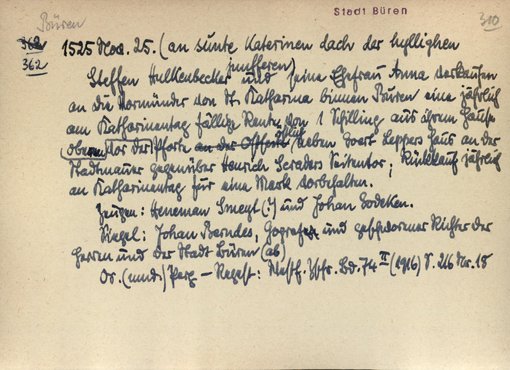 Büren
Stadt Büren
310
362
362
1525 Nov. 25. (an sunte Katerinen dach der hyllighen
junfferen)
Steffen Hulkenbecker und seine Ehefrau Anna verkaufen
an die Vormünder von St. Katharina binnen Büren eine jährlich
am Katharinentag fällige Rente von 1 Schilling aus ihrem Hause
oben vor der Pforte an der neben Evert Leppers Haus an der
Stadtmauer gegenüber Henrich Scraders Seitentor; Rückkauf jährlich
an Katharinentag für eine Mark vorbehalten.
Zeugen: Heneman Smeyt (?) und Johan Godeken.
Siegel: Johan Berndes, Gografe und geschworner Richter der
Herren und der Stadt Büren (ab)
Or. (mnd.) Perg – Regest: Westf. Ztschr. Bd. 74 II (1916) S. 216 Nr. 18